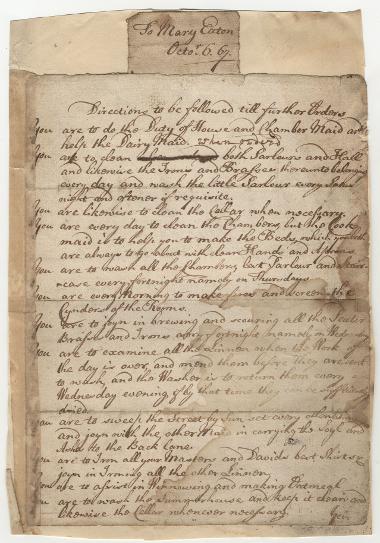 To Mary Eaton
Octor. 6. 67.
Directions to be followed till further Orders
You are to do the Duty of House and Chamber Maid and
help the Dairy Maid when ordered
You are to clean both Parlours and Hall
and likewise the Irons and Brasses thereunto belonging
every day and wash the little Parlour every
night and oftener if requisite.
You are likewise to clean the Cellar when necessary.
You are every day to clean the Chambers, but the Cook
maid is to help you to make the Beds, which you
are always to go about with clean Hands and Aprons
You are to wash all the Chambers, East Parlour and Stair
case every fortnight namely on Thursdays
You are every Morning to make fires and screen the
Cynders of the Rooms.
You are to joyn in brewing and scouring all the
Brasses and Irons every fortnight namely on
You are to examine all the Linnen when the Work of
the day is over, and mend them before they are sent
to wash, and the Washer is to return them every
Wednesday evening if by that time they can be
dried.
You are to sweep the Street by Sun set every
and joyn with the other Maid in carrying the Soyl and
to the Back lane
You are to Iron all your Masters and Davids best Shirts &
joyn in Ironing all the other Linnen.
You are to assist in Winnowing and making Oatmeal
You are to wash the Summerhouse and keep it clean and
likewise the Cellar whenever necessary.